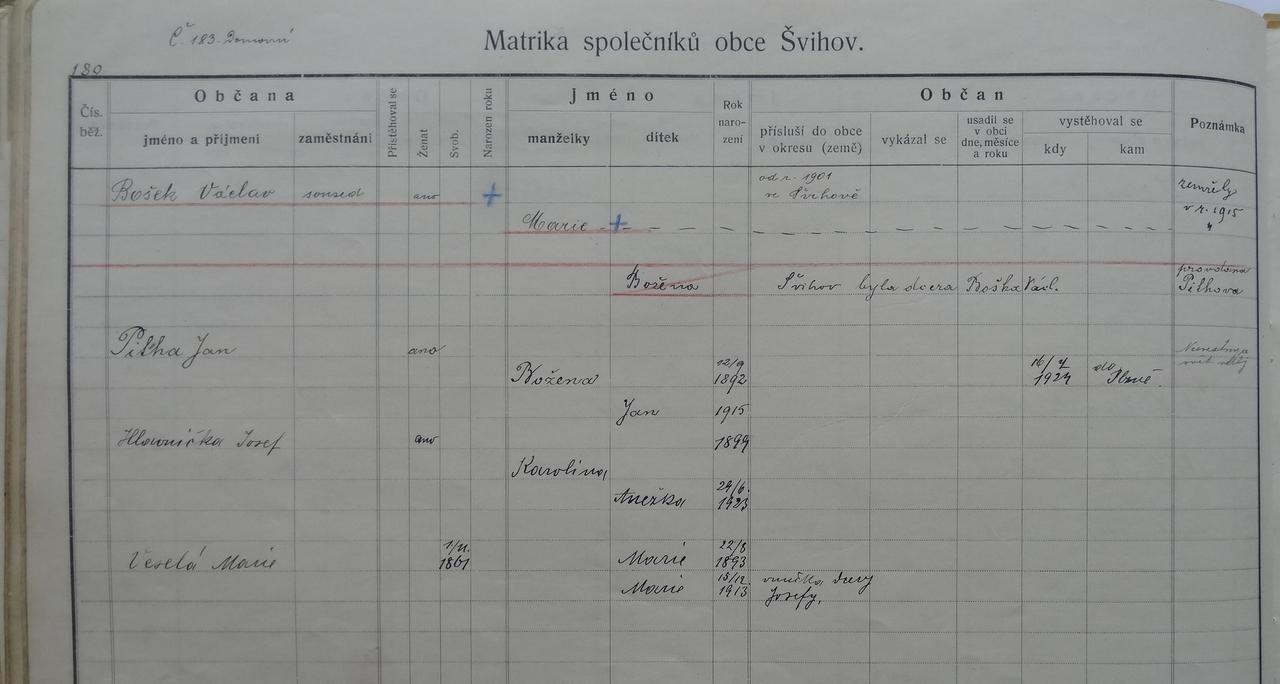 Č 183 Domovní
Matrika společníků obce Švihov.
180
Čís. běž.
Občana
jméno a příjmení
zaměstnání
Přistěhoval se
Ženat
Svob.
Narozen roku
Jméno
manželky
dítek
Rok naro- zení
Občan
přísluší do obce v okresu (země)
vykázal se
usadil se v obci dne, měsíce a roku
vystěhoval se
kdy
kam
Poznámka
Bošek Václav soused ano + od r. 1901 ve Švihově zemřely
Marie + v r. 1915 "
Božena Švihov byla dcera Boška Václ. provdaná Pithova
Pitha Jan ano
Božena 12/9 1892 16/7 1924 do Plzně.
Jan 1915
Hlavnička Josef ano 1899
Karolina
Anežka 24/6. 1923
Veselá Marie 1/11. 1861 Marie 22/8 1893
Marie 15/12. 1913 vnučka dcery Josefy.